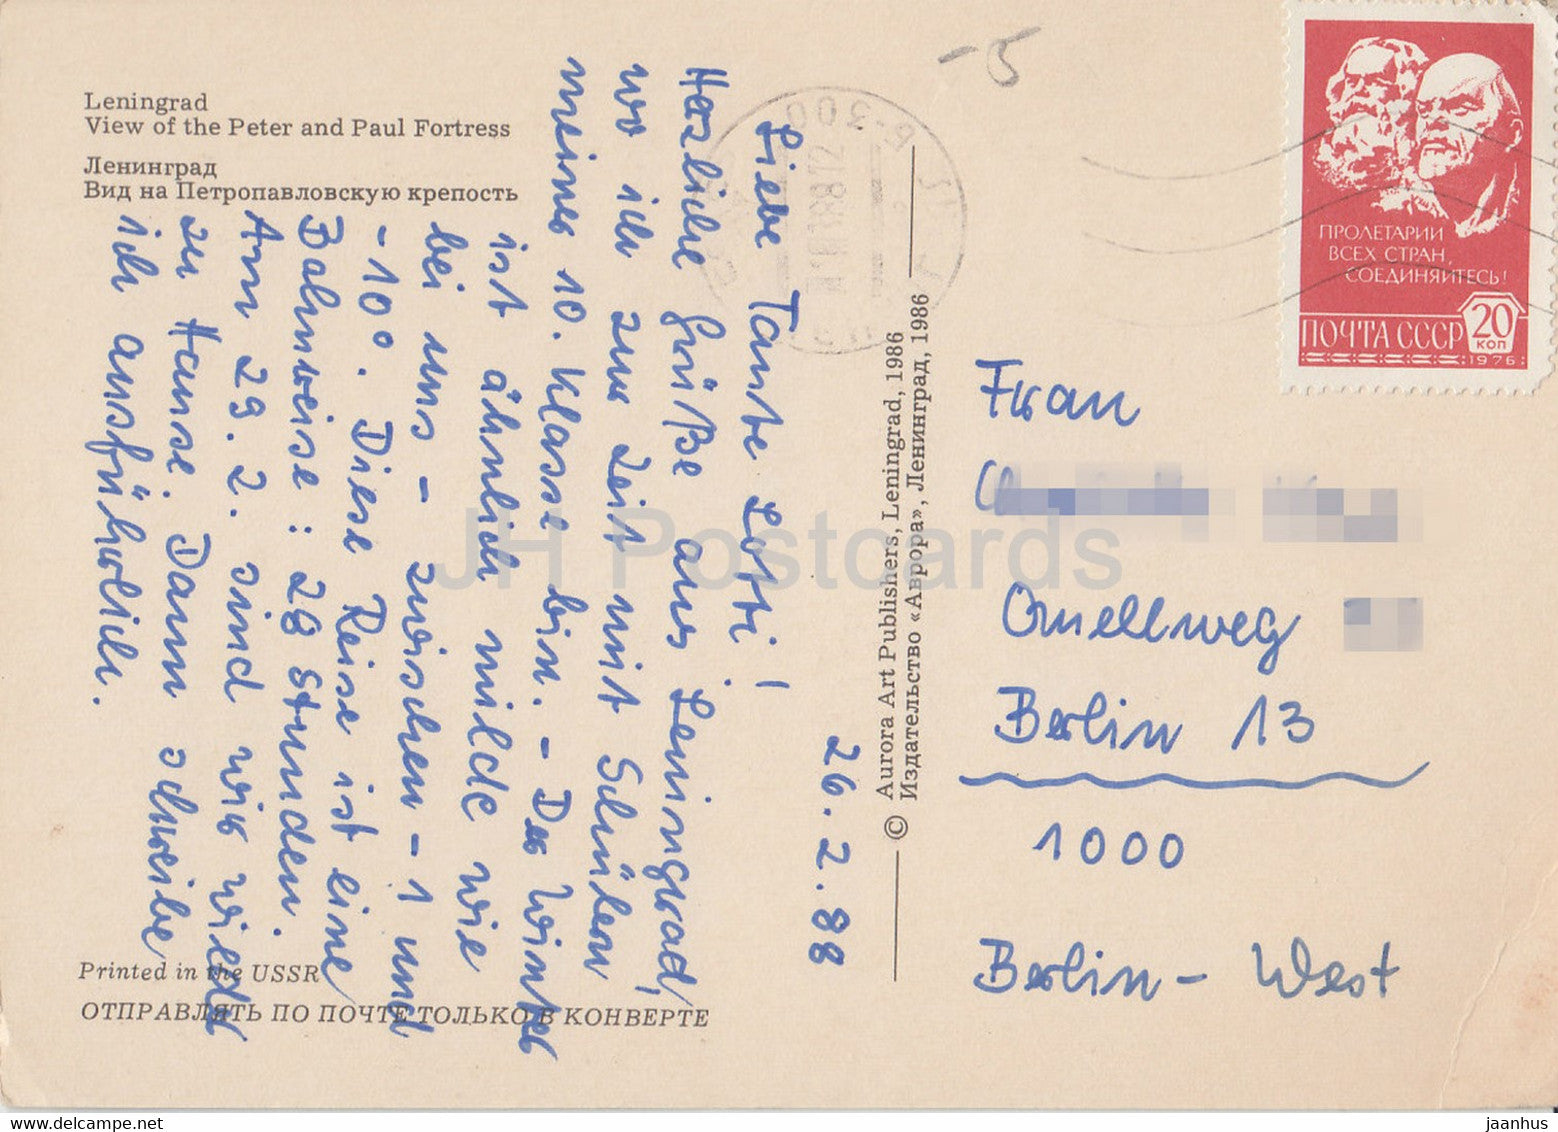 Leningrad
View of the Peter and Paul Fortress
Ленинград
Вид на Петропавловскую крепость
26.2.88
Liebe Tante Lotti!
Herzliche Grüße aus Leningrad,
wo ich zur Zeit mit Schülern
meiner 10. Klasse bin. – Der Winter
ist ähnlich milde wie
bei uns – zwischen -1 und
-10°. Diese Reise ist eine
Bahnreise: 28 Stunden.
Am 29.2. sind wir wieder
zu Hause. Dann schreibe
ich ausführlich.
Printed in the USSR
ОТПРАВЛЯТЬ ПО ПОЧТЕ ТОЛЬКО В КОНВЕРТЕ
© Aurora Art Publishers, Leningrad, 1986
Издательство «Аврора», Ленинград, 1986
-5
ПРОЛЕТАРИИ
ВСЕХ СТРАН,
СОЕДИНЯЙТЕСЬ!
ПОЧТА СССР
20
КОП
1976
Frau
Quellweg
Berlin 13
1000
Berlin-West
JH Postcards
www.delcampe.net
jaanhus